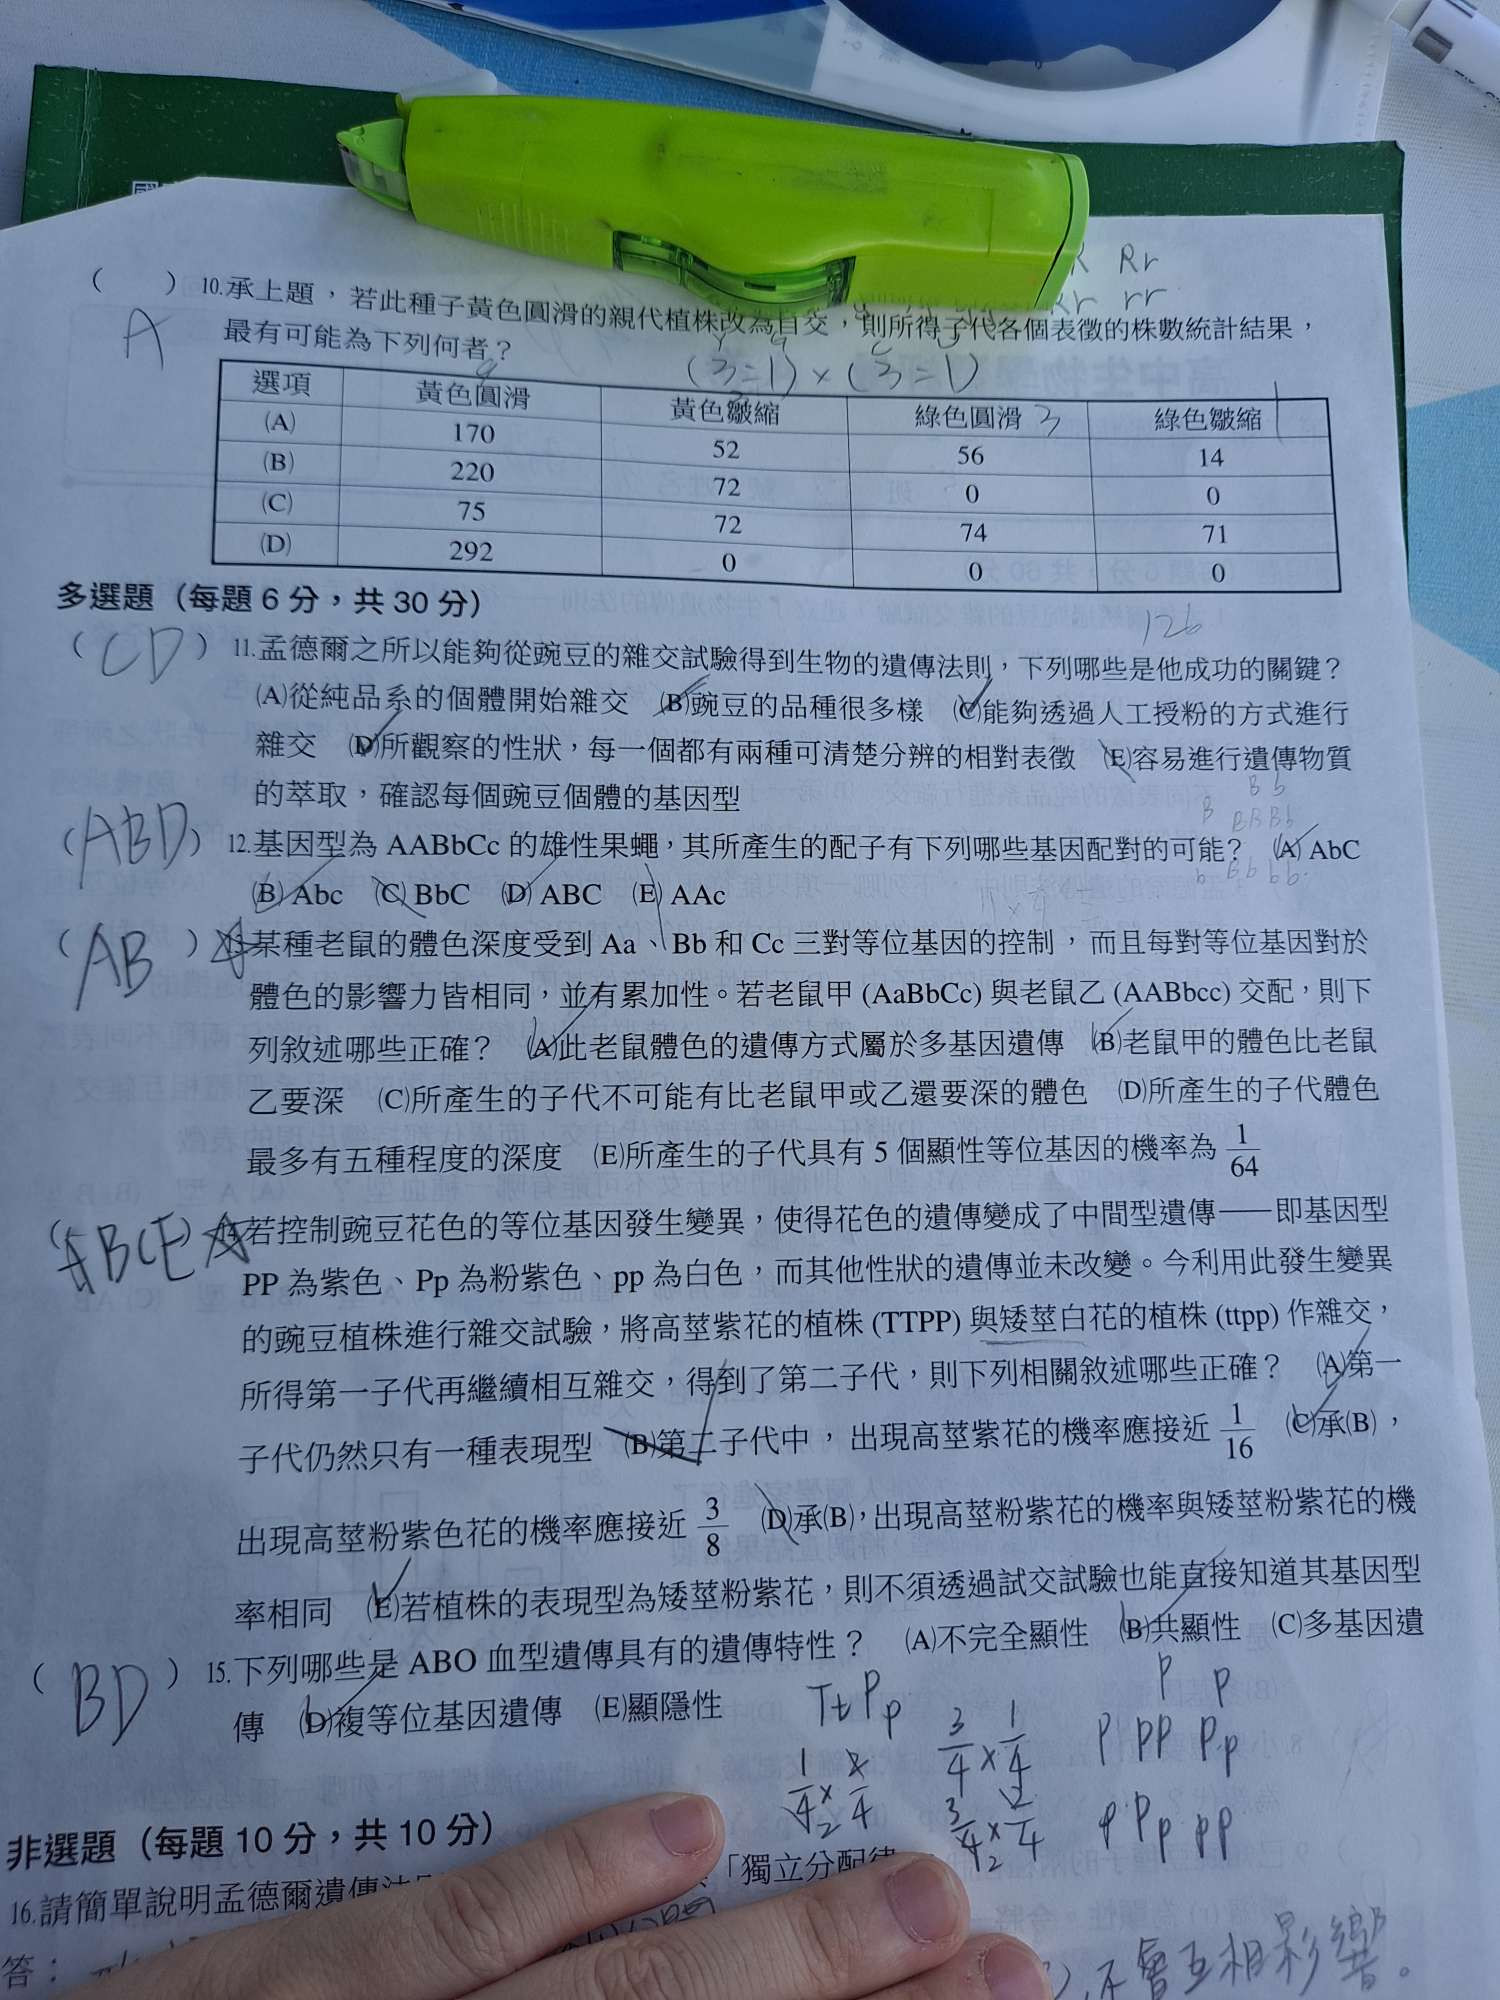 R Rr
Rr rr
( ) 10.承上題，若此種子黃色圓滑的親代植株改為自交，則所得子代各個表徵的株數統計結果，
A 最有可能為下列何者？
(3=1)×(3=1)
選項 黃色圓滑 黃色皺縮 綠色圓滑 3 綠色皺縮 1
(A) 170 52 56 14
(B) 220 72 0 0
(C) 75 72 74 71
(D) 292 0 0 0
多選題（每題 6 分，共 30 分）
126
( CD ) 11.孟德爾之所以能夠從豌豆的雜交試驗得到生物的遺傳法則，下列哪些是他成功的關鍵？
(A)從純品系的個體開始雜交 (B)豌豆的品種很多樣 (C)能夠透過人工授粉的方式進行
雜交 (D)所觀察的性狀，每一個都有兩種可清楚分辨的相對表徵 (E)容易進行遺傳物質
的萃取，確認每個豌豆個體的基因型
B b
B BB Bb
b Bb bb
( ABD ) 12.基因型為 AABbCc 的雄性果蠅，其所產生的配子有下列哪些基因配對的可能？ (A) AbC
(B) Abc (C) BbC (D) ABC (E) AAc
( AB ) 13.某種老鼠的體色深度受到 Aa、Bb 和 Cc 三對等位基因的控制，而且每對等位基因對於
體色的影響力皆相同，並有累加性。若老鼠甲 (AaBbCc) 與老鼠乙 (AABbcc) 交配，則下
列敘述哪些正確？ (A)此老鼠體色的遺傳方式屬於多基因遺傳 (B)老鼠甲的體色比老鼠
乙要深 (C)所產生的子代不可能有比老鼠甲或乙還要深的體色 (D)所產生的子代體色
最多有五種程度的深度 (E)所產生的子代具有 5 個顯性等位基因的機率為 1/64
( ABCE ) 14.若控制豌豆花色的等位基因發生變異，使得花色的遺傳變成了中間型遺傳——即基因型
PP 為紫色、Pp 為粉紫色、pp 為白色，而其他性狀的遺傳並未改變。今利用此發生變異
的豌豆植株進行雜交試驗，將高莖紫花的植株 (TTPP) 與矮莖白花的植株 (ttpp) 作雜交，
所得第一子代再繼續相互雜交，得到了第二子代，則下列相關敘述哪些正確？ (A)第一
子代仍然只有一種表現型 (B)第二子代中，出現高莖紫花的機率應接近 1/16 (C)承(B)，
出現高莖粉紫色花的機率應接近 3/8 (D)承(B)，出現高莖粉紫花的機率與矮莖粉紫花的機
率相同 (E)若植株的表現型為矮莖粉紫花，則不須透過試交試驗也能直接知道其基因型
( BD ) 15.下列哪些是 ABO 血型遺傳具有的遺傳特性？ (A)不完全顯性 (B)共顯性 (C)多基因遺
傳 (D)複等位基因遺傳 (E)顯隱性
TtPp
P p
3/4 × 1/4
P PP Pp
1/4 × 2/4
3/4 × 2/4
p Pp pp
非選題（每題 10 分，共 10 分）
16.請簡單說明孟德爾遺傳法 「獨立分配律
答：
不會互相影響。